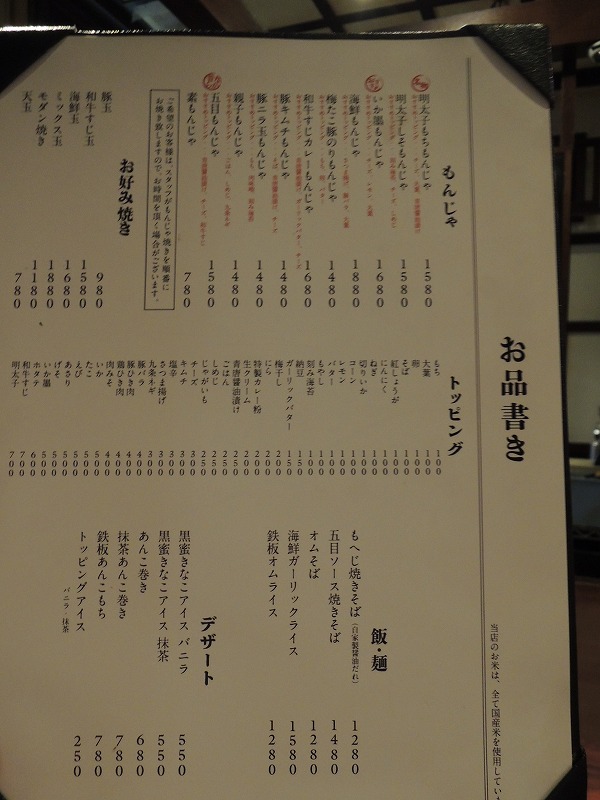 お品書き
当店のお米は、全て国産米を使用してい
もんじゃ
明太子もちもんじゃ 1580
明太子しそもんじゃ 1580
いか墨もんじゃ 1680
海鮮もんじゃ 1880
梅たこ豚のりもんじゃ 1480
和牛すじカレーもんじゃ 1680
豚キムチもんじゃ 1480
豚ニラ玉もんじゃ 1480
親子もんじゃ 1480
五目もんじゃ 1580
素もんじゃ 780
ご希望のお客様は、スタッフがもんじゃ焼きを順番に
お焼き致しますので、お時間を頂く場合がございます。
お好み焼き
豚玉 980
和牛すじ玉 1580
海鮮玉 1680
ミックス玉 1880
モダン焼き 1180
天玉 780
トッピング
もち 100
大葉 100
卵 100
そば 100
紅しょうが 100
にんにく 100
ねぎ 100
切りいか 100
コーン 100
レモン 100
バター 100
もやし 100
刻み海苔 100
納豆 150
ガーリックバター 150
梅干し 200
にら 200
特製カレー粉 200
生クリーム 200
青唐醤油漬け 250
ごはん 250
しめじ 250
じゃがいも 250
チーズ 300
キムチ 300
塩辛 300
さつま揚げ 300
九条ネギ 300
豚バラ 400
豚ひき肉 400
鶏ひき肉 400
肉みそ 400
いか 500
たこ 500
えび 500
あさり 500
げそ 500
いか墨 500
ホタテ 600
和牛すじ 700
明太子 700
飯・麺
もへじ焼きそば（自家製醤油だれ） 1280
五目ソース焼きそば 1480
オムそば 1280
海鮮ガーリックライス 1580
鉄板オムライス 1280
デザート
黒蜜きなこアイス バニラ 550
黒蜜きなこアイス 抹茶 550
あんこ巻き 680
抹茶あんこ巻き 780
鉄板あんこもち 780
トッピングアイス 250
バニラ・抹茶